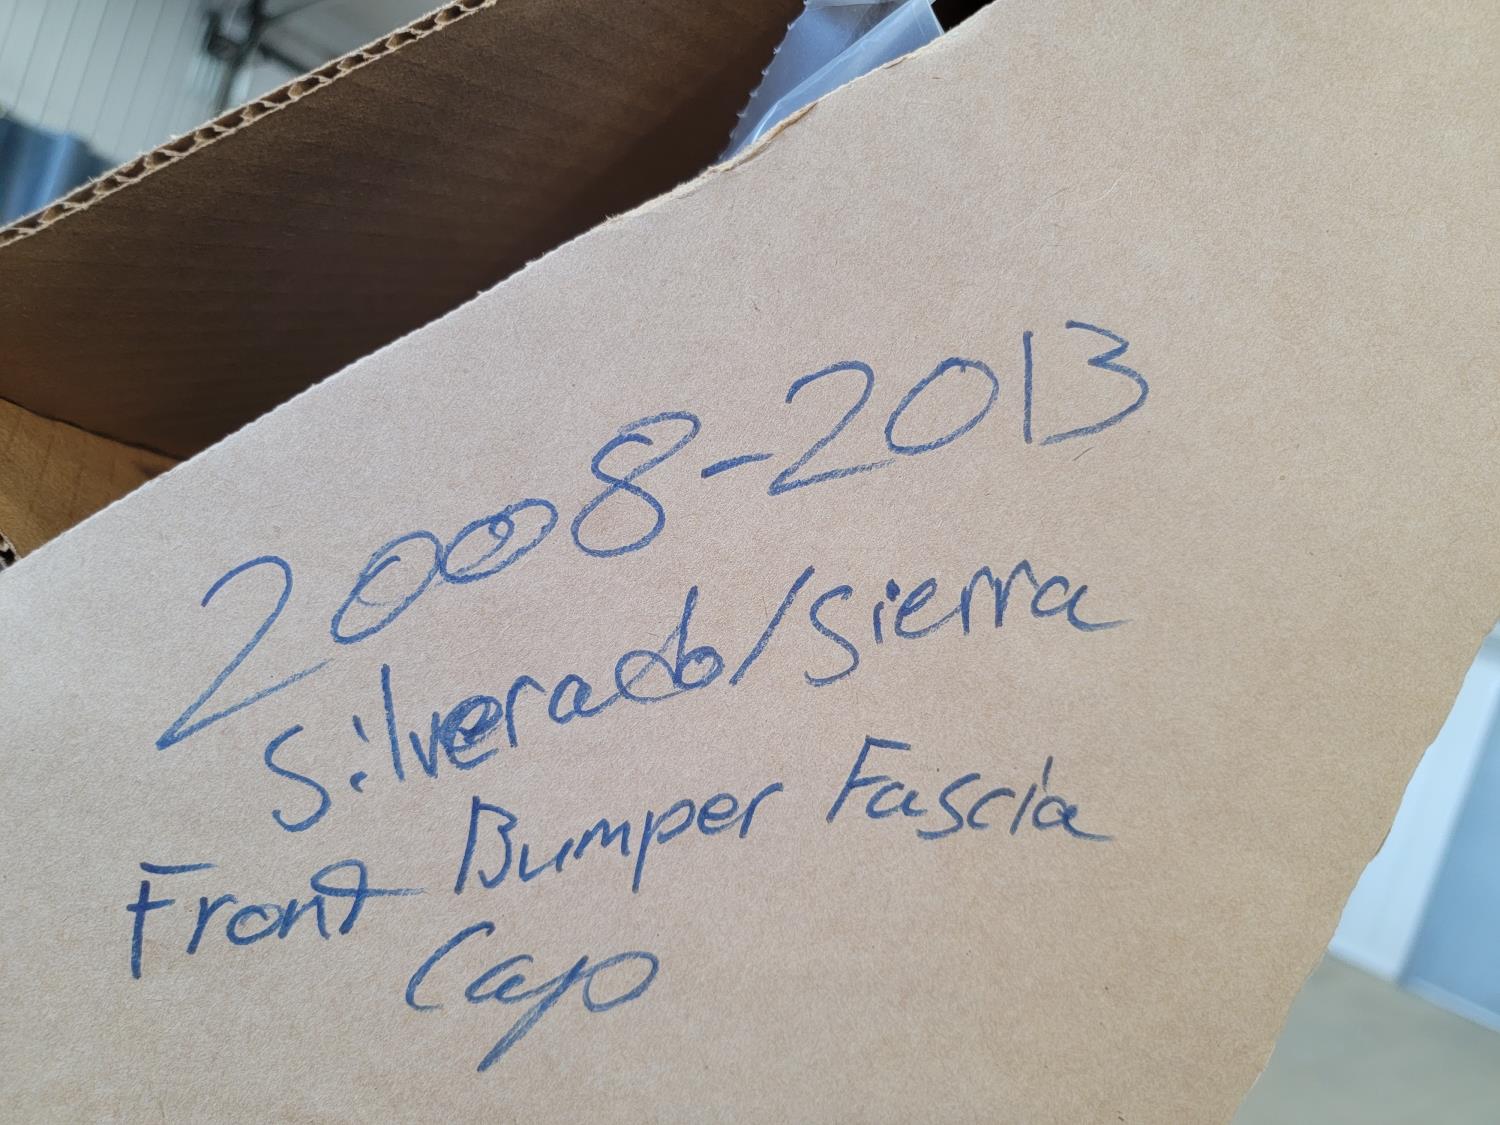 2008-2013
Silverado/Sierra
Front Bumper Fascia
Cap